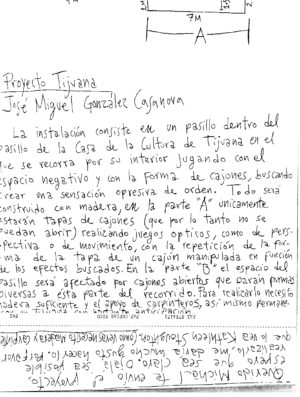 7M
A
Proyecto Tijuana
José Miguel González Casanova
La instalación consiste en un pasillo dentro del
pasillo de la Casa de la Cultura de Tijuana en el
que se recorra por su interior jugando con el
espacio negativo y con la forma de cajones, buscando
crear una sensación opresiva de orden. Todo será
construido con madera, en la parte "A" unicamente
estarán tapas de cajones (que por lo tanto no se
puedan abrir) realizando juegos opticos, como de pers-
pectiva o de movimiento, con la repetición de la for-
ma de la tapa de un cajón manipulada en función
de los efectos buscados. En la parte "B" el espacio del
pasillo será afectado por cajones abiertos que darán formas
diversas a ésta parte del recorrido. Para realizarlo necesito
madera suficiente y el apoyo de carpinteros, así mismo permane-
Querido Michael te envío el proyecto,
espero que sea claro. Ojalá sea posible
realizarlo, me daría mucho gusto hacerlo.